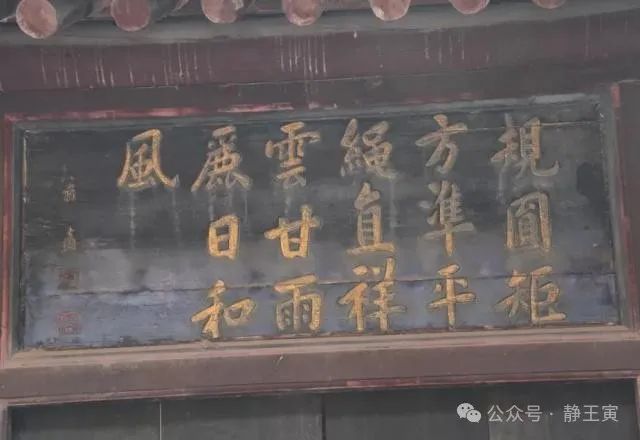 規圓矩
方準平
繩直祥
雲甘雨
麗日和
風
公众号 · 静王寅